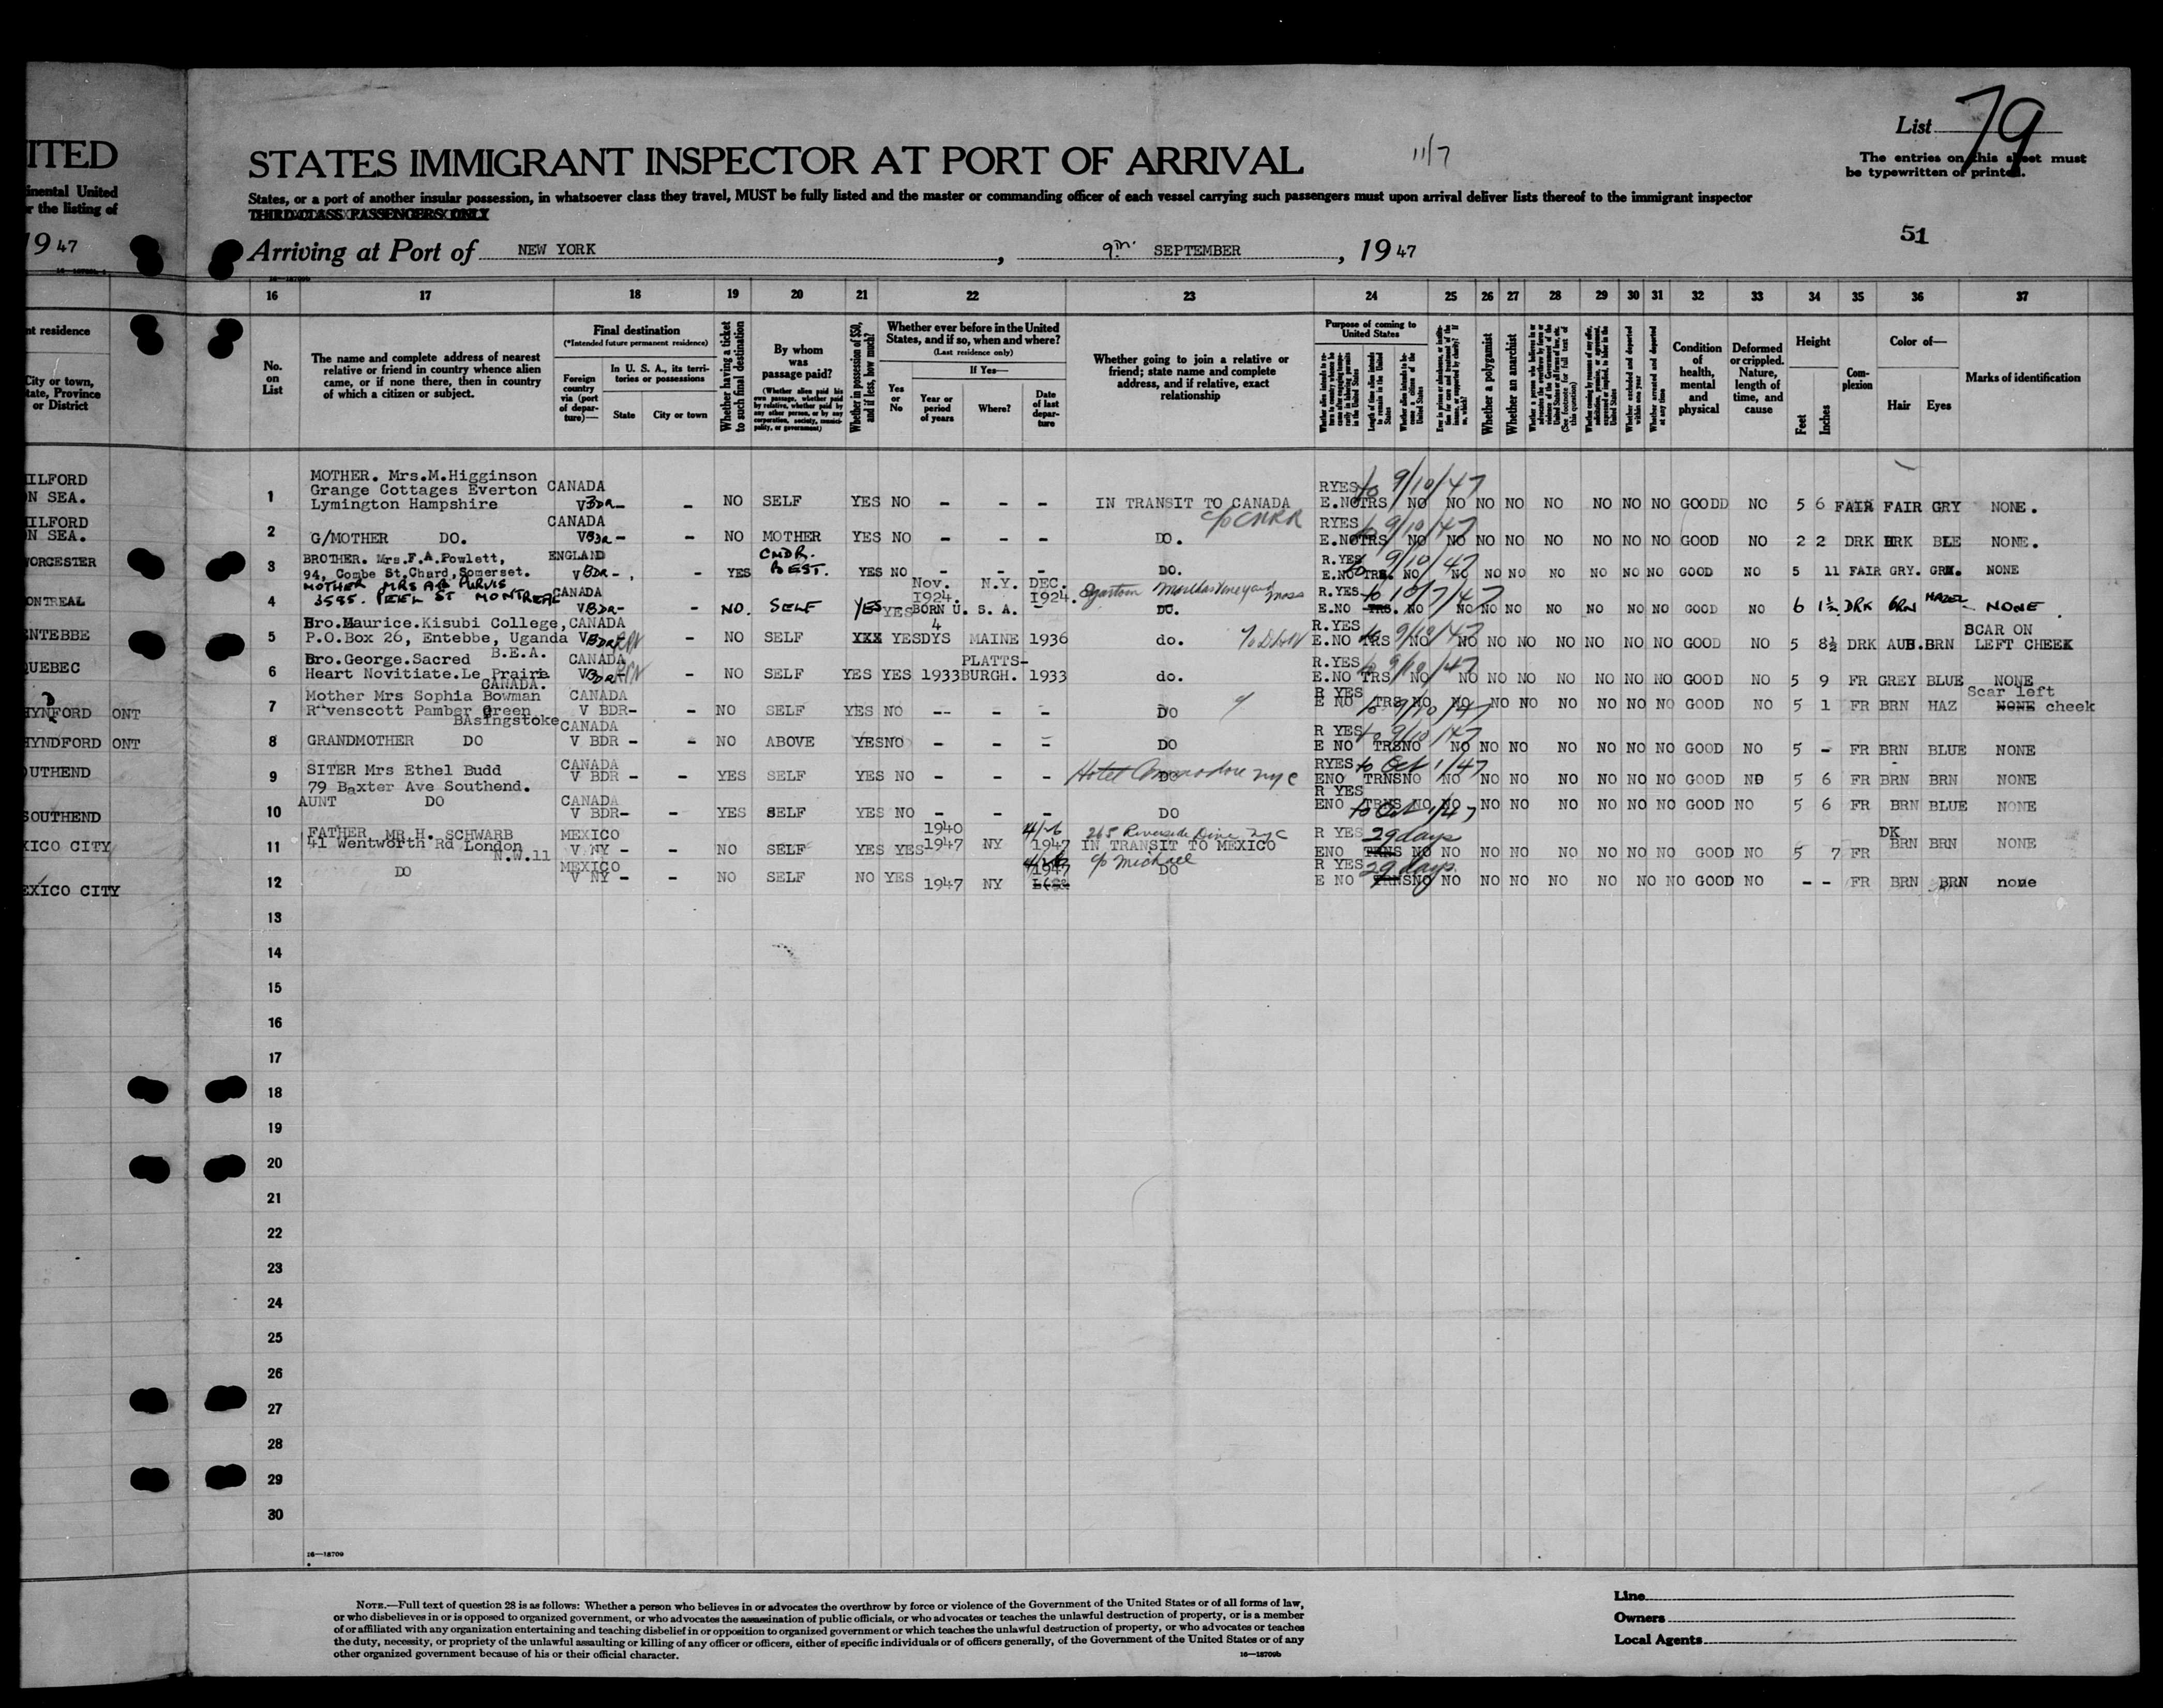 List 79
ITED
STATES IMMIGRANT INSPECTOR AT PORT OF ARRIVAL
11/7
The entries on this sheet must
be typewritten or printed.
inental United
r the listing of
States, or a port of another insular possession, in whatsoever class they travel, MUST be fully listed and the master or commanding officer of each vessel carrying such passengers must upon arrival deliver lists thereof to the immigrant inspector
THIRD CLASS PASSENGERS ONLY
51
19 47
Arriving at Port of NEW YORK, 9th. SEPTEMBER, 19 47
16 17 18 19 20 21 22 23 24 25 26 27 28 29 30 31 32 33 34 35 36 37
nt residence
City or town,
tate, Province
or District
No.
on
List
The name and complete address of nearest
relative or friend in country whence alien
came, or if none there, then in country
of which a citizen or subject.
Final destination
(*Intended future permanent residence)
Foreign
country
via (port
of depar-
ture)—
In U. S. A., its terri-
tories or possessions
State City or town
Whether having a ticket
to such final destination
By whom
was
passage paid?
(Whether alien paid his
own passage, whether paid
by relative, whether paid by
any other person, or by any
corporation, society, munici-
pality, or government)
Whether in possession of $50,
and if less, how much?
Whether ever before in the United
States, and if so, when and where?
(Last residence only)
Yes
or
No
If Yes—
Year or
period
of years
Where?
Date
of last
depar-
ture
Whether going to join a relative or
friend; state name and complete
address, and if relative, exact
relationship
Purpose of coming to
United States
Whether a polygamist
Whether an anarchist
Condition
of
health,
mental
and
physical
Deformed
or crippled.
Nature,
length of
time, and
cause
Height
Feet
Inches
Com-
plexion
Color of—
Hair Eyes
Marks of identification
ILFORD
N SEA.
1 MOTHER. Mrs.M.Higginson
Grange Cottages Everton
Lymington Hampshire CANADA V BDR - - NO SELF YES NO - - - IN TRANSIT TO CANADA c/o CNRR RYES E.NO TRS to 9/10/47 NO NO NO NO NO NO NO NO GOODD NO 5 6 FAIR FAIR GRY NONE.
ILFORD
N SEA.
2 G/MOTHER DO. CANADA V BDR - - NO MOTHER YES NO - - - DO. RYES E.NO TRS 9/10/47 NO NO NO NO NO NO NO NO GOOD NO 2 2 DRK DRK BLE NONE.
WORCESTER
3 BROTHER. Mrs.F.A.Powlett,
94, Combe St.Chard,Somerset. ENGLAND V BDR - YES CMDR. BEST. YES NO - - - DO. R.YES E.NO TRS. to 9/10/47 NO NO NO NO NO NO NO NO GOOD NO 5 11 FAIR GRY. GRN. NONE
ONTREAL
4 MOTHER MRS AB PURVIS
3585. PEEL ST MONTREAL CANADA V BDR - - NO. SELF YES YES Nov. 1924. BORN U. S. A. N.Y. DEC. 1924. DO. R.YES E.NO TRS. to 10/7/47 NO NO NO NO NO NO NO NO GOOD NO 6 1½ DRK BRN HAZEL - NONE
ENTEBBE
5 Bro.Maurice.Kisubi College,
P.O.Box 26, Entebbe, Uganda
B.E.A. CANADA V BDR - NO SELF XXX YES 4 DYS MAINE 1936 do. R.YES E.NO TRS 9/10/47 NO NO NO NO NO NO NO NO GOOD NO 5 8½ DRK AUB. BRN SCAR ON
LEFT CHEEK
QUEBEC
6 Bro.George.Sacred
Heart Novitiate.Le Prairie
CANADA. CANADA V BDR - NO SELF YES YES 1933 PLATTS-
BURGH. 1933 do. R.YES E.NO TRS 9/10/47 NO NO NO NO NO NO NO NO GOOD NO 5 9 FR GREY BLUE NONE
HYNDFORD ONT
7 Mother Mrs Sophia Bowman
Ravenscott Pamber Green
BAsingstoke CANADA V BDR - - NO SELF YES NO -- - - DO R YES E NO TRS to 9/10/47 NO NO NO NO NO NO NO NO GOOD NO 5 1 FR BRN HAZ Scar left
NONE cheek
HYNDFORD ONT
8 GRANDMOTHER DO CANADA V BDR - - NO ABOVE YES NO - - - DO R YES E NO TRS to 9/10/47 NO NO NO NO NO NO NO NO GOOD NO 5 - FR BRN BLUE NONE
OUTHEND
9 SITER Mrs Ethel Budd
79 Baxter Ave Southend. CANADA V BDR - - YES SELF YES NO - - - Hotel Commodore NYC DO RYES ENO TRNS to Oct 1/47 NO NO NO NO NO NO NO NO GOOD NO 5 6 FR BRN BRN NONE
SOUTHEND
10 AUNT DO CANADA V BDR - - YES SELF YES NO - - - DO R YES ENO TRNS to Oct 1/47 NO NO NO NO NO NO NO NO GOOD NO 5 6 FR BRN BLUE NONE
XICO CITY
11 FATHER MR H. SCHWARB
41 Wentworth Rd London
N.W.11 MEXICO V NY - - NO SELF YES YES 1940 1947 NY 1947 265 Riverside Drive NYC
IN TRANSIT TO MEXICO R YES ENO TRNS 29 days NO NO NO NO NO NO NO NO GOOD NO 5 7 FR DK BRN BRN NONE
EXICO CITY
12 DO MEXICO V NY - - NO SELF NO YES 1947 NY 1947 c/o Michael
DO R YES E NO TRNS 29 days NO NO NO NO NO NO NO NO GOOD NO - - FR BRN BRN none
13
14
15
16
17
18
19
20
21
22
23
24
25
26
27
28
29
30
16—18709
NOTE.—Full text of question 28 is as follows: Whether a person who believes in or advocates the overthrow by force or violence of the Government of the United States or of all forms of law,
or who disbelieves in or is opposed to organized government, or who advocates the assassination of public officials, or who advocates or teaches the unlawful destruction of property, or is a member
of or affiliated with any organization entertaining and teaching disbelief in or opposition to organized government or which teaches the unlawful destruction of property, or who advocates or teaches
the duty, necessity, or propriety of the unlawful assaulting or killing of any officer or officers, either of specific individuals or of officers generally, of the Government of the United States or of any
other organized government because of his or their official character.
16—18709b
Line
Owners
Local Agents